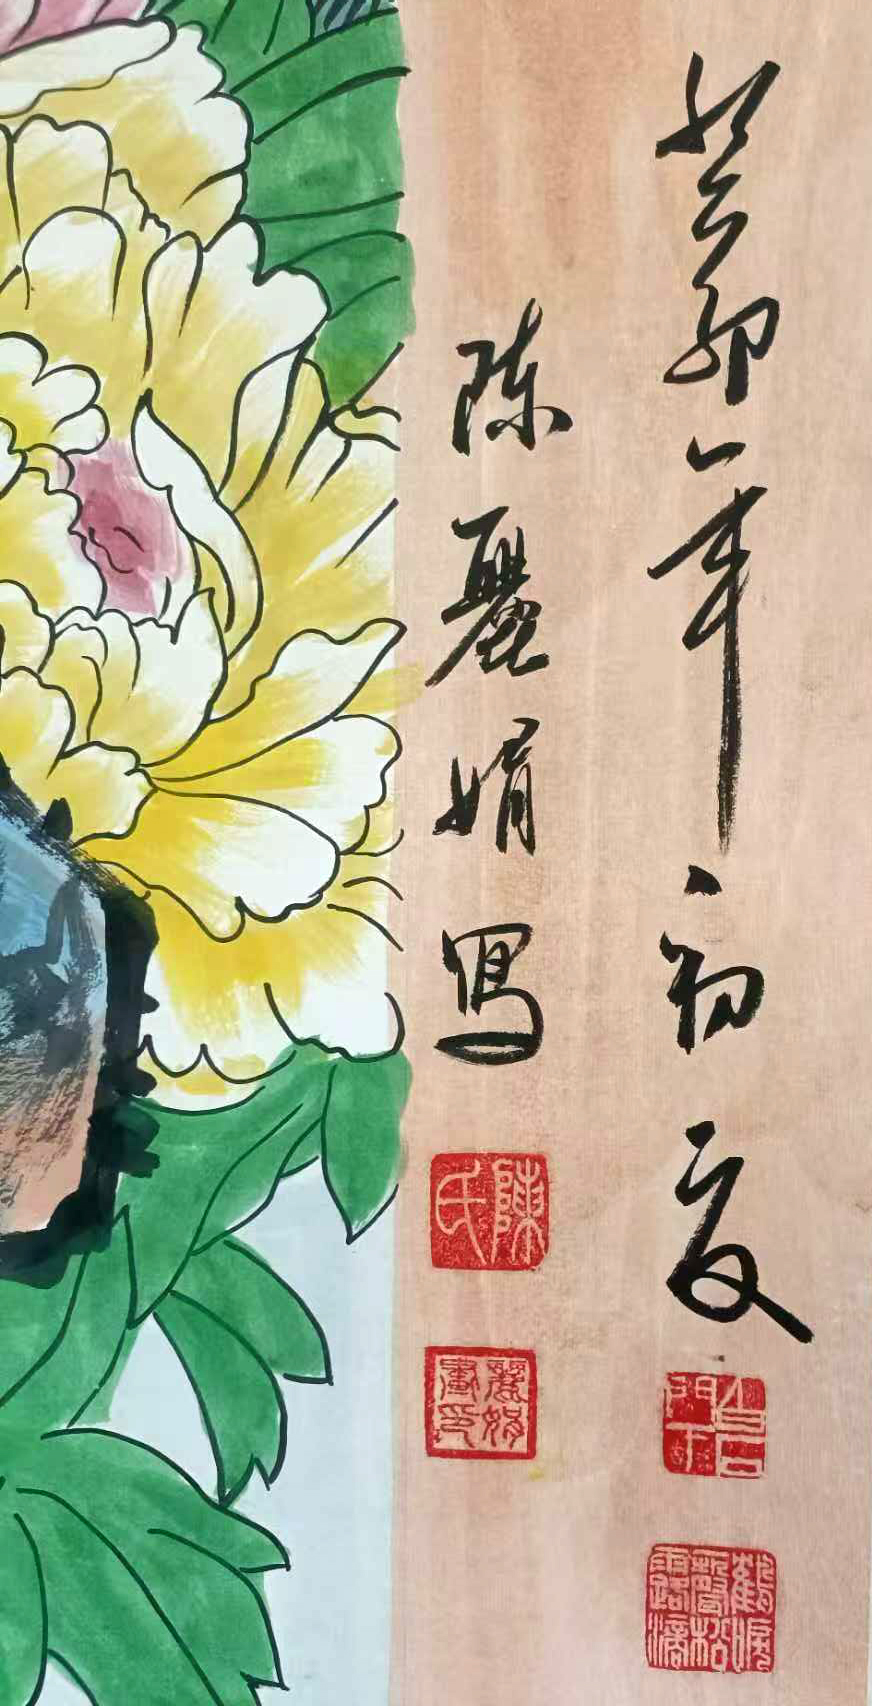 癸卯年初夏
陈麗娟寫
陳氏
麗娟畫印